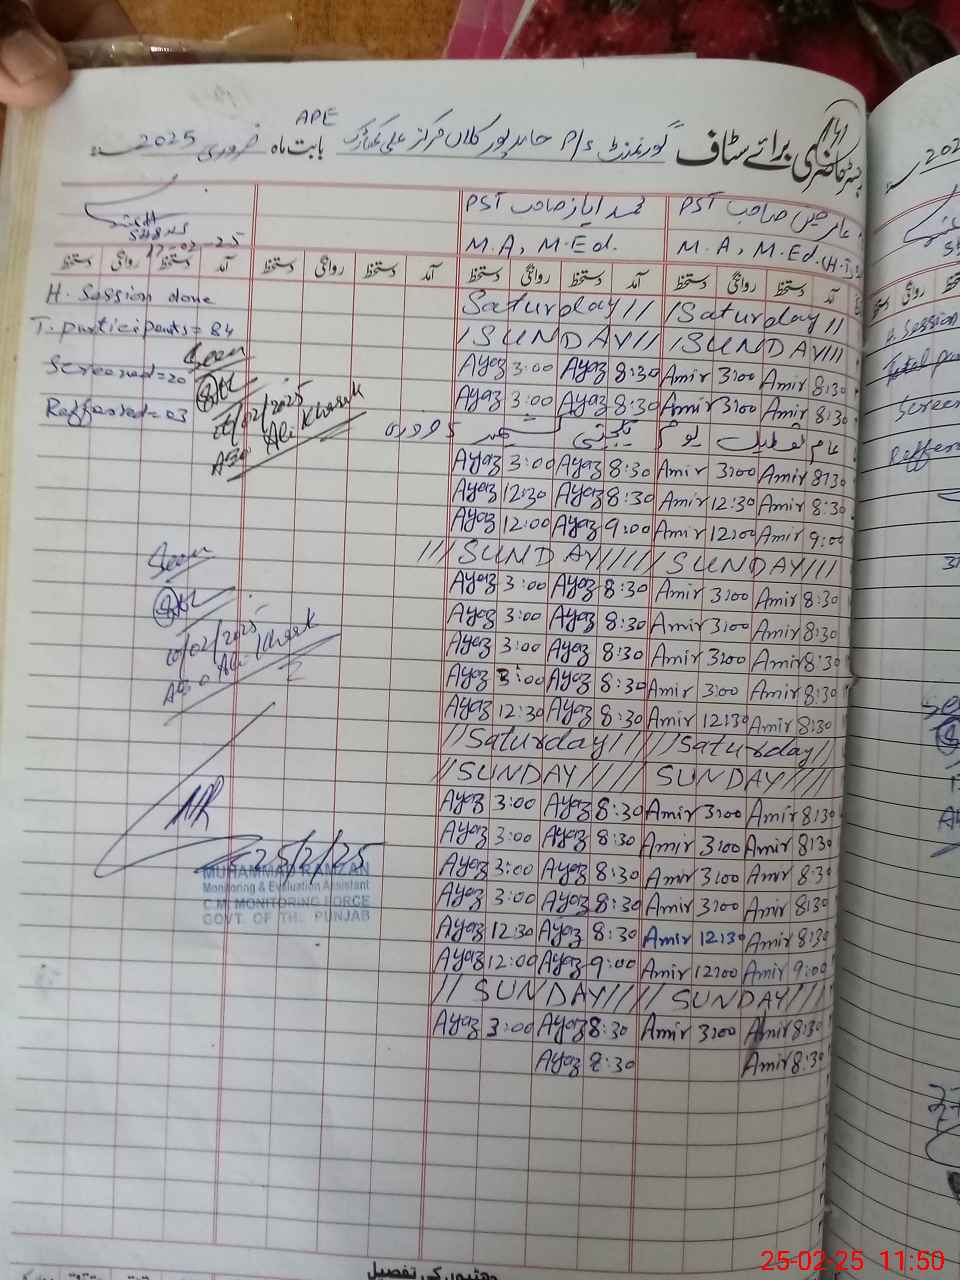 رجسٹر حاضری برائے سٹاف گورنمنٹ P/S حامد پور کلاں مرکز علی کھاڑک بابت ماہ فروری 2025ء
APE
عامر حسین صاحب PST
M.A, M.Ed. (H.T)
محمد ایاز صاحب PST
M.A, M.Ed.
17-02-25
آمد دستخط روانگی دستخط آمد دستخط روانگی دستخط آمد دستخط روانگی دستخط آمد دستخط روانگی دستخط
H. Session done
T. participants = 84
Screened = 20
Reffered = 03
Seen
06/02/2025
AEO Ali Kharak
Saturday // /Saturday //
/SUNDAY/// /SUNDAY///
Ayaz 3:00 Ayaz 8:30 Amir 3:00 Amir 8:30
Ayaz 3:00 Ayaz 8:30 Amir 3:00 Amir 8:30
عام تعطیل یوم یکجہتی کشمیر 05
Ayaz 3:00 Ayaz 8:30 Amir 3:00 Amir 8:30
Ayaz 12:30 Ayaz 8:30 Amir 12:30 Amir 8:30
Ayaz 12:00 Ayaz 9:00 Amir 12:00 Amir 9:00
/// SUNDAY////// SUNDAY////
Ayaz 3:00 Ayaz 8:30 Amir 3:00 Amir 8:30
Ayaz 3:00 Ayaz 8:30 Amir 3:00 Amir 8:30
Ayaz 3:00 Ayaz 8:30 Amir 3:00 Amir 8:30
Ayaz 3:00 Ayaz 8:30 Amir 3:00 Amir 8:30
Ayaz 12:30 Ayaz 8:30 Amir 12:30 Amir 8:30
//Saturday// //Saturday//
//SUNDAY///// SUNDAY////
Ayaz 3:00 Ayaz 8:30 Amir 3:00 Amir 8:30
Ayaz 3:00 Ayaz 8:30 Amir 3:00 Amir 8:30
Ayaz 3:00 Ayaz 8:30 Amir 3:00 Amir 8:30
Ayaz 3:00 Ayaz 8:30 Amir 3:00 Amir 8:30
Ayaz 12:30 Ayaz 8:30 Amir 12:30 Amir 8:30
Ayaz 12:00 Ayaz 9:00 Amir 12:00 Amir 9:00
// SUNDAY///// SUNDAY////
Ayaz 3:00 Ayaz 8:30 Amir 3:00 Amir 8:30
Ayaz 8:30 Amir 8:30
Seen
10/02/2025
AEO Ali Kharak
25/2/25
MUHAMMAD RAMZAN
Monitoring & Evaluation Assistant
C.M. MONITORING FORCE
GOVT. OF THE PUNJAB
چھٹیوں کی تفصیل
25-02-25 11:50